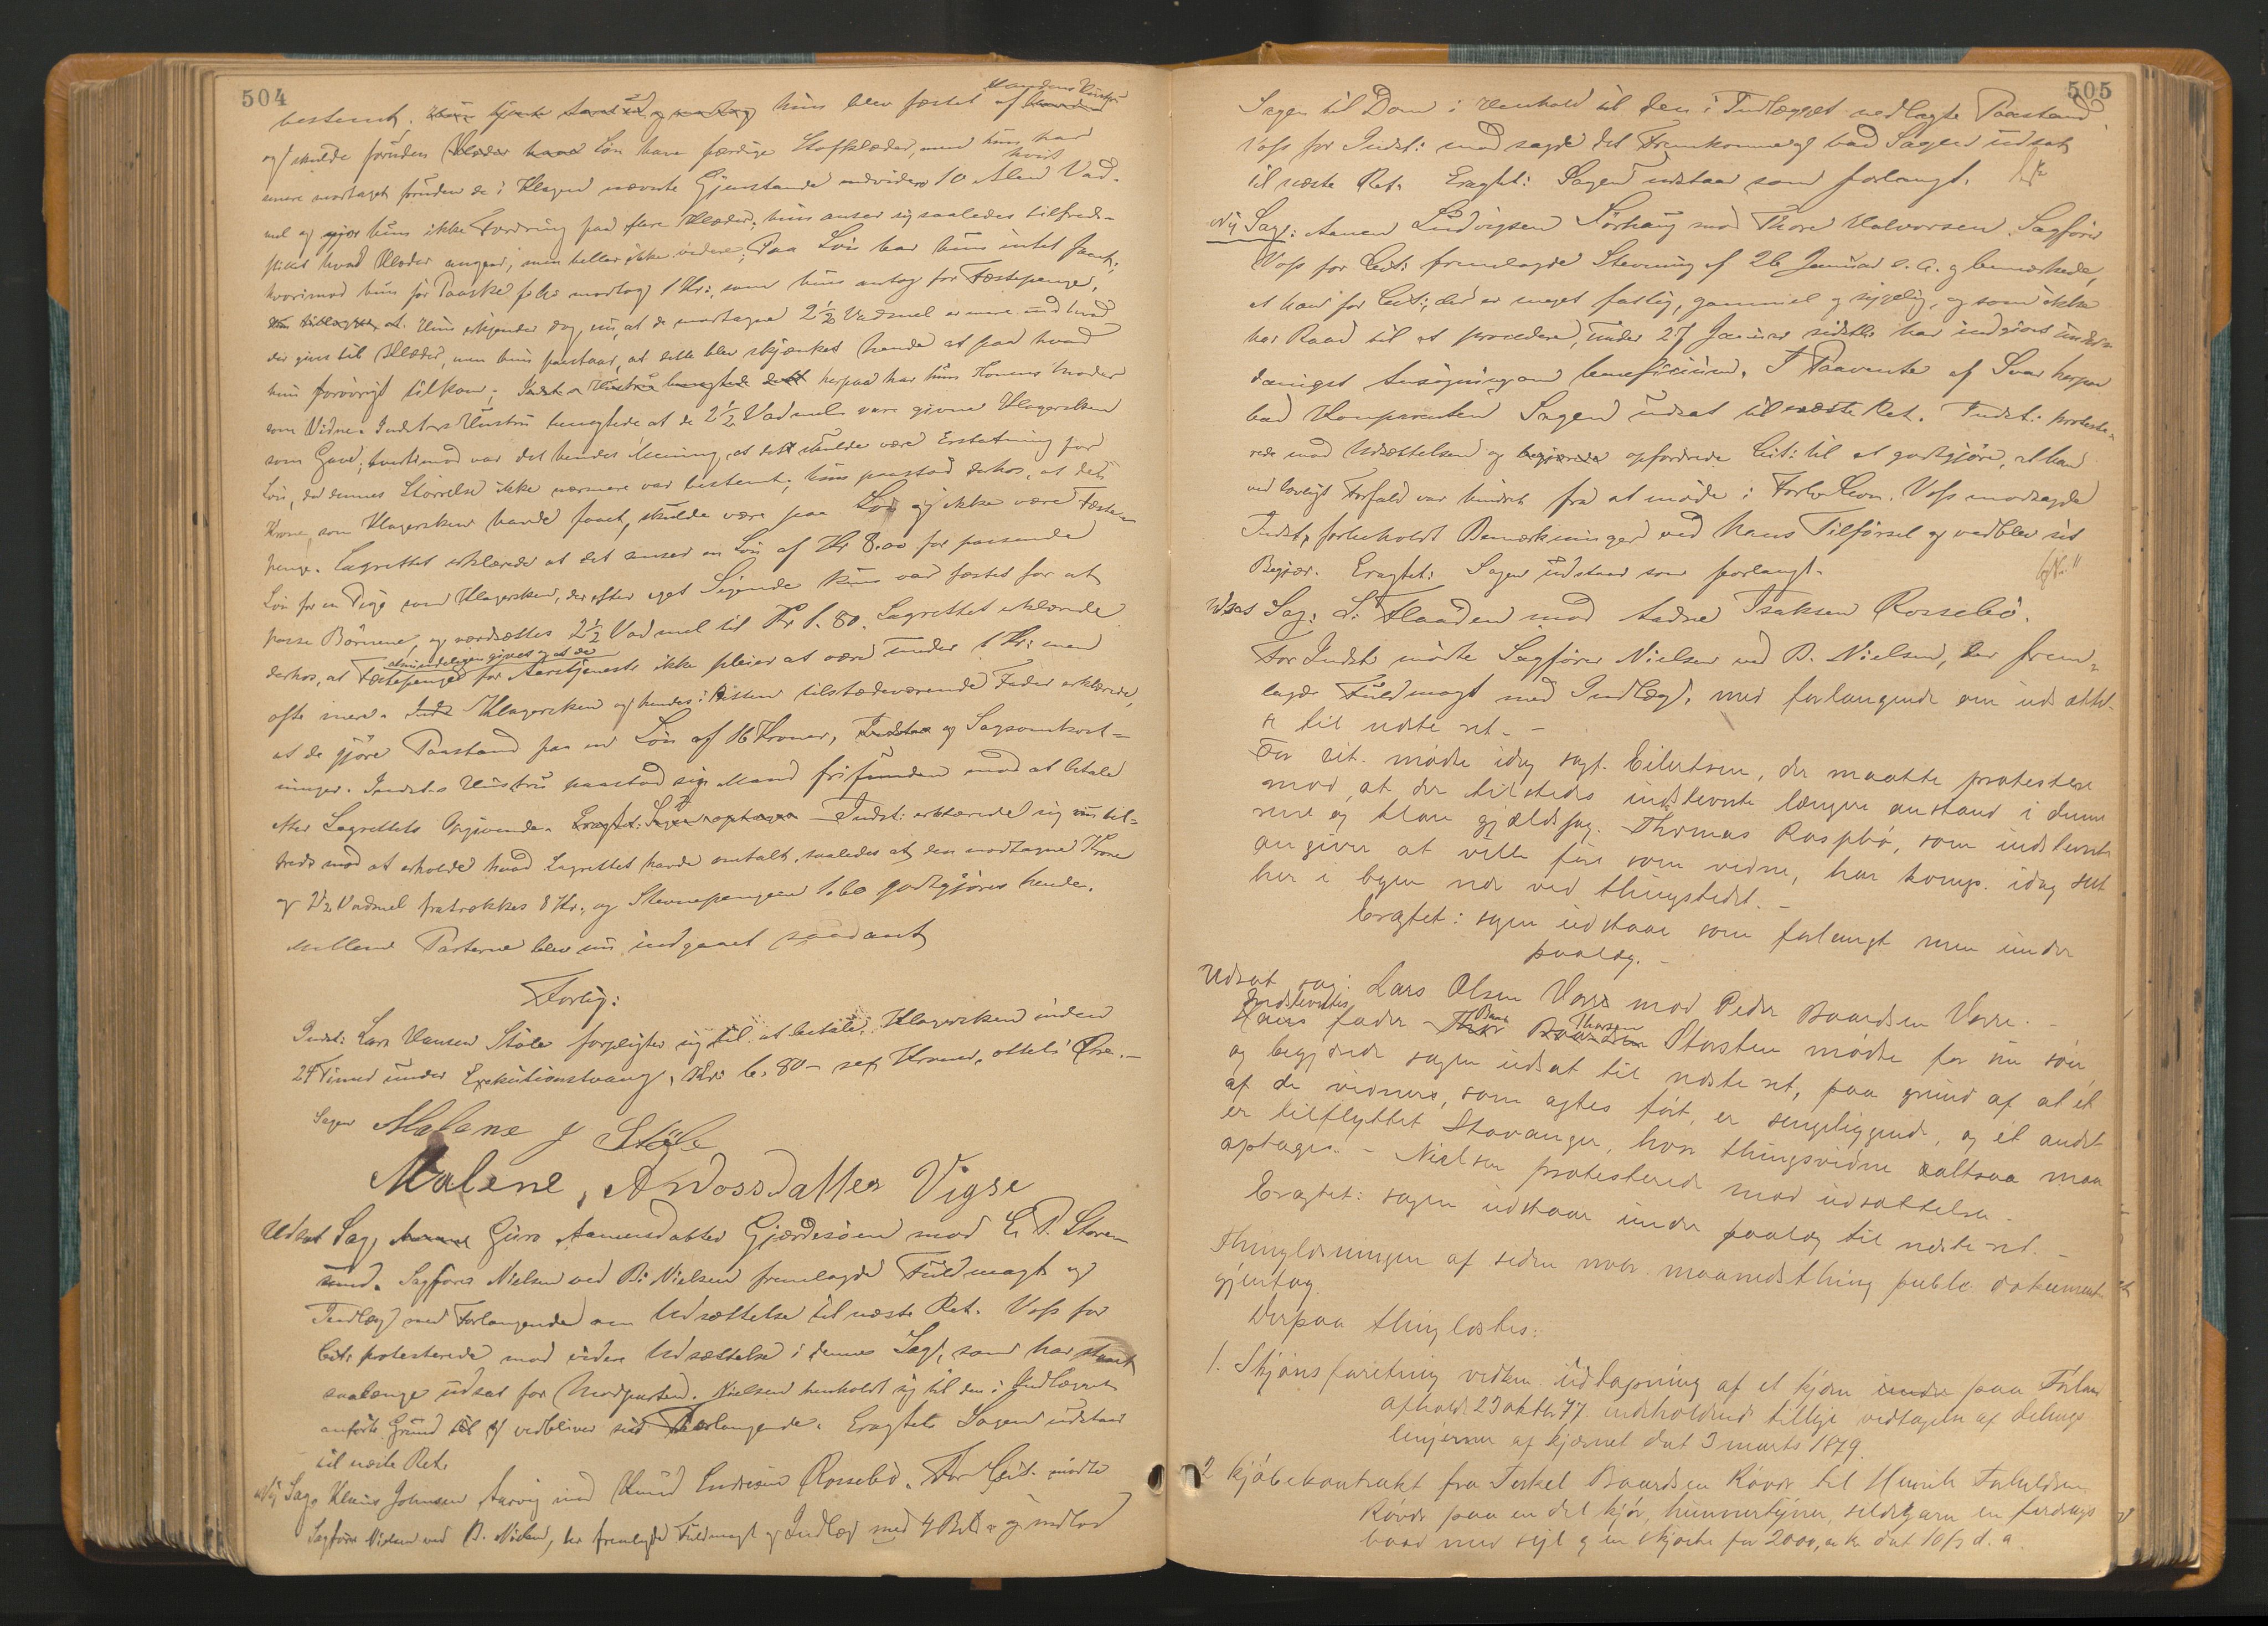 504
bestemt. hun blev fæstet af Mandens Hustru
og skulde foruden Løn have færdige Stofklæder, men hun har
mere modtaget foruden de i Klagen nævnte Gjenstande endvidere 10 Alen Vad-
mel og gjør hun ikke Fordring paa flere Klæder; hun anser sig saaledes tilfreds-
stillet hvad Klæder angaar, men heller ikke videre. Paa Løn har hun intet faaet;
hvorimod hun før Paaske f. A. modtog 1 Kr., som hun antog for Fæstepenge.
Hun erkjender dog nu, at de modtagne 2½ Vadmel er mere end hvad
der gives til Klæder, men hun paastaar, at dette blev skjænket hende at paa hvad
hun forøvrigt tilkom; herpaa har hun Konens Moder
som Vidne. Indst.s Hustru benegtede at de 2½ Vadmel vare givne Klagersken
som Gave; tvertimod var det hendes Mening, at det skulde være Erstatning for
Løn, da dennes Størrelse ikke nærmere var bestemt; hun paastod derhos, at den
Krone, som Klagersken havde faaet, skulde være paa Løn og ikke være Fæste-
penge. Lagrettet erklærede at det anser en Løn af Kr 8.00 for passende
Løn for en Pige som Klagersken, der efter eget Sigende kun var fæstet for at
passe Børnene, og værdsættes 2½ Vadmel til Kr 1.80. Lagrettet erklærede
derhos, at Fæstepenge almindeligen gives og at de for Aarstjeneste ikke pleier at være under 1 Kr: men
ofte mere. Klagersken og hendes i Retten tilstedeværende Fader erklærede,
at de gjøre Paastand paa en Løn af 16 Kroner, og Sagsomkost-
ninger. Indst.s Hustru paastod sin Mand frifunden mod at betale
efter Lagrettets Opgivende. Indst: erklærede sig nu til-
freds med at erholde hvad Lagrettet havde omtalt, saaledes at den modtagne Krone
og 2½ Vadmel fratrækkes 8 Kr., og Stevnepengene 1.60 godtgjøres hende.
Mellem Parterne blev nu indgaaet saadant
Forlig:
Indst: Lars Hansen Støle forpligter sig til at betale Klagersken inden
24 Timer under Exekutionstvang, Kr: 6.80 – sex Kroner, otteti Øre. –
Malene J Støle
Malene, Andossdatter Vigse
Udsat Sag, Guro Aamundsdatter Gjerdesøen mod E. P. Storm-
sund. Sagfører Nielsen ved B. Nielsen fremlagde Fuldmagt og
Indlæg med Forlangende om Udsættelse til næste Ret. Voss for
Cit: protesterede mod videre Udsættelse i denne Sag, som har staaet
saalænge udsat for Modparten. Nielsen henholdt sig til den i Indlægget
anførte Grund og vedbliver sit Forlangende. Eragtet: Sagen udstaar
til næste Ret.
Ny Sag, Klaus Johnsen Aarvig mod Knud Endresen Rossebø. For Cit. mødte
Sagfører Nielsen ved B. Nielsen, der fremlagde Fuldmagt og Indlæg med 4 Bil. og indlod
505
Sagen til Dom i Henhold til den i Indlægget nedlagte Paastand.
Voss for Indst: modsagde det Fremkomne og bad Sagen udsat
til næste Ret. Eragtet: Sagen udstaar som forlangt.
Ny Sag: Aanen Ludvigsen Sørhaug mod Thore Halvorsen. Sagfører
Voss for Cit: fremlagde Stevning af 26 Januar d. A. og bemærkede,
at han for Cit:, der er meget fattig, gammel og sygelig, og som ikke
har Raad til at procedere, under 27 Januar sidstl. har indgivet under-
danigst Ansøgning om beneficium. I Paavente af Svar herpaa
bad Komparenten Sagen udsat til næste Ret. Indst: proteste-
rede mod Udsættelsen og opfordrede Cit: til at godtgjøre, at han
ved lovligt Forfald var hindret fra at møde i Forl. Com. Voss modsagde
Indst, forbeholdt Bemærkninger ved hans Tilførsel og vedblev sit
Begjær. Eragtet: Sagen udstaar som forlangt.
Udsat Sag: S. Flaaden mod Aadne Isaksen Rossebø.
For Indst mødte Sagfører Nielsen ved B. Nielsen, der frem-
lagde Fuldmagt med Indlæg, med forlangende om udsættel-
se til næste ret. –
For cit. mødte idag sagf. Eilertsen, der maatte protestere
mod, at der tilstedes indstevnte længere anstand i denne
rene og klare gjældssag. Thomas Rospbø, som indstevnte
angiver at ville føre som vidne, har komp. idag seet
her i byen nær ved thingstedet. –
Eragtet: sagen udstaar som forlangt men under
paalæg. –
Udsat sag: Lars Olsen Vorre mod Peder Baardsen Vorre. –
Indstevntes
fader Baar Thorsen Storsten mødte for sin søn
og begjærede sagen udsat til næste ret, paa grund af at et
af de vidner, som agtes ført, er sengeliggende, og et andet
er tilflyttet Stavanger, hvor thingsvidne altsaa maa
optages. – Nielsen protesterede mod udsættelse. –
Eragtet: sagen udstaar under paalæg til næste ret. –
Thinglæsningen af siden maanedsthing publ. dokument
gjentog.
Derpaa thinglæstes:
1. Skjønsforretning vedkm. udtapning af et kjærn paa Førland
afholdt 23 oktbr. 77 indeholdende tillige vedtagelse af delings
linjerne af kjærnet dat 3 marts 1879.
2 Kjøbekontrakt fra Torkel Baardsen Røvær til Henrik
Røvær paa en del kjør, hummertejner, sildegarn en færdings
baad med sejl og en skjøite for 2000, kr. dat 10/3 d. a.